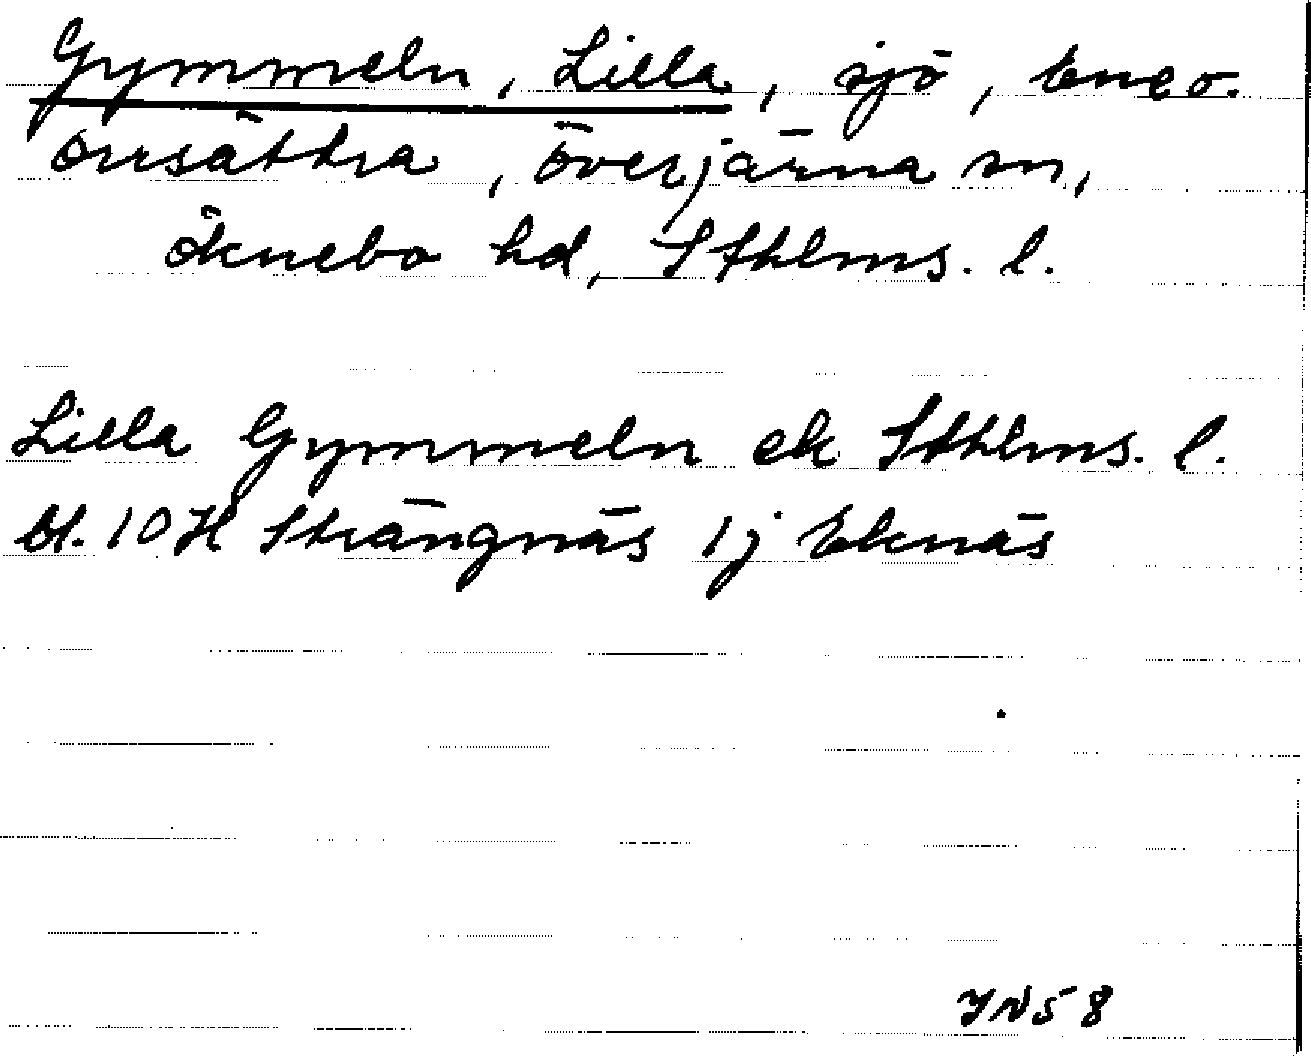 Gymmeln, Lilla, sjö, Ene o.
Örsättra, Överjärna sn,
Öknebo hd, Sthlms. l.
Lilla Gymmeln ek Sthlms. l.
bl. 10H Strängnäs 1j Eknäs
YN58